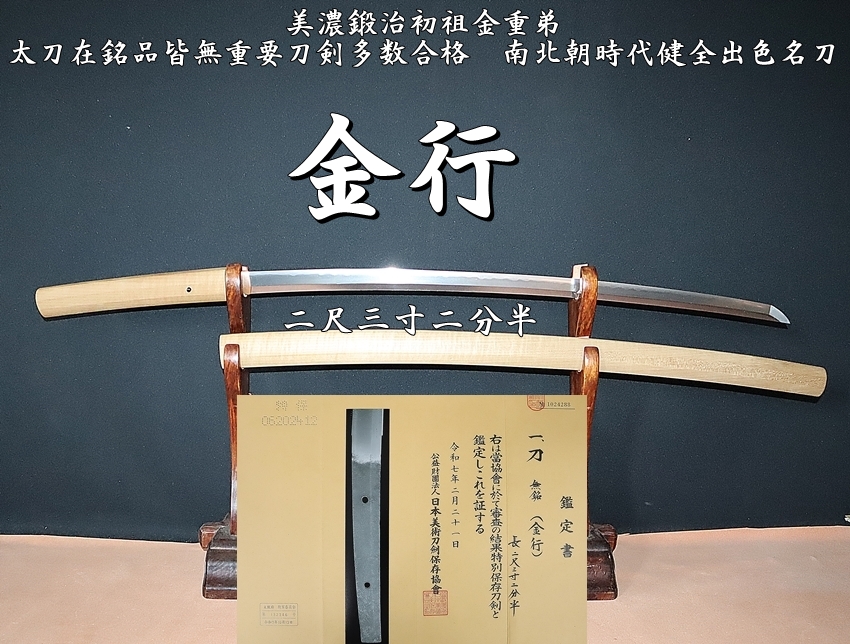 美濃鍛治初祖金重弟
太刀在銘品皆無重要刀剣多数合格　南北朝時代健全出色名刀
金行
二尺三寸二分半
鑑定書
一、刀 無銘（金行）
長二尺三寸二分半
右は當協會に於て審査の結果特別保存刀剣と
鑑定しこれを証する
令和七年二月二十一日
公益財團法人日本美術刀剣保存協會
№ 1024288
06202412